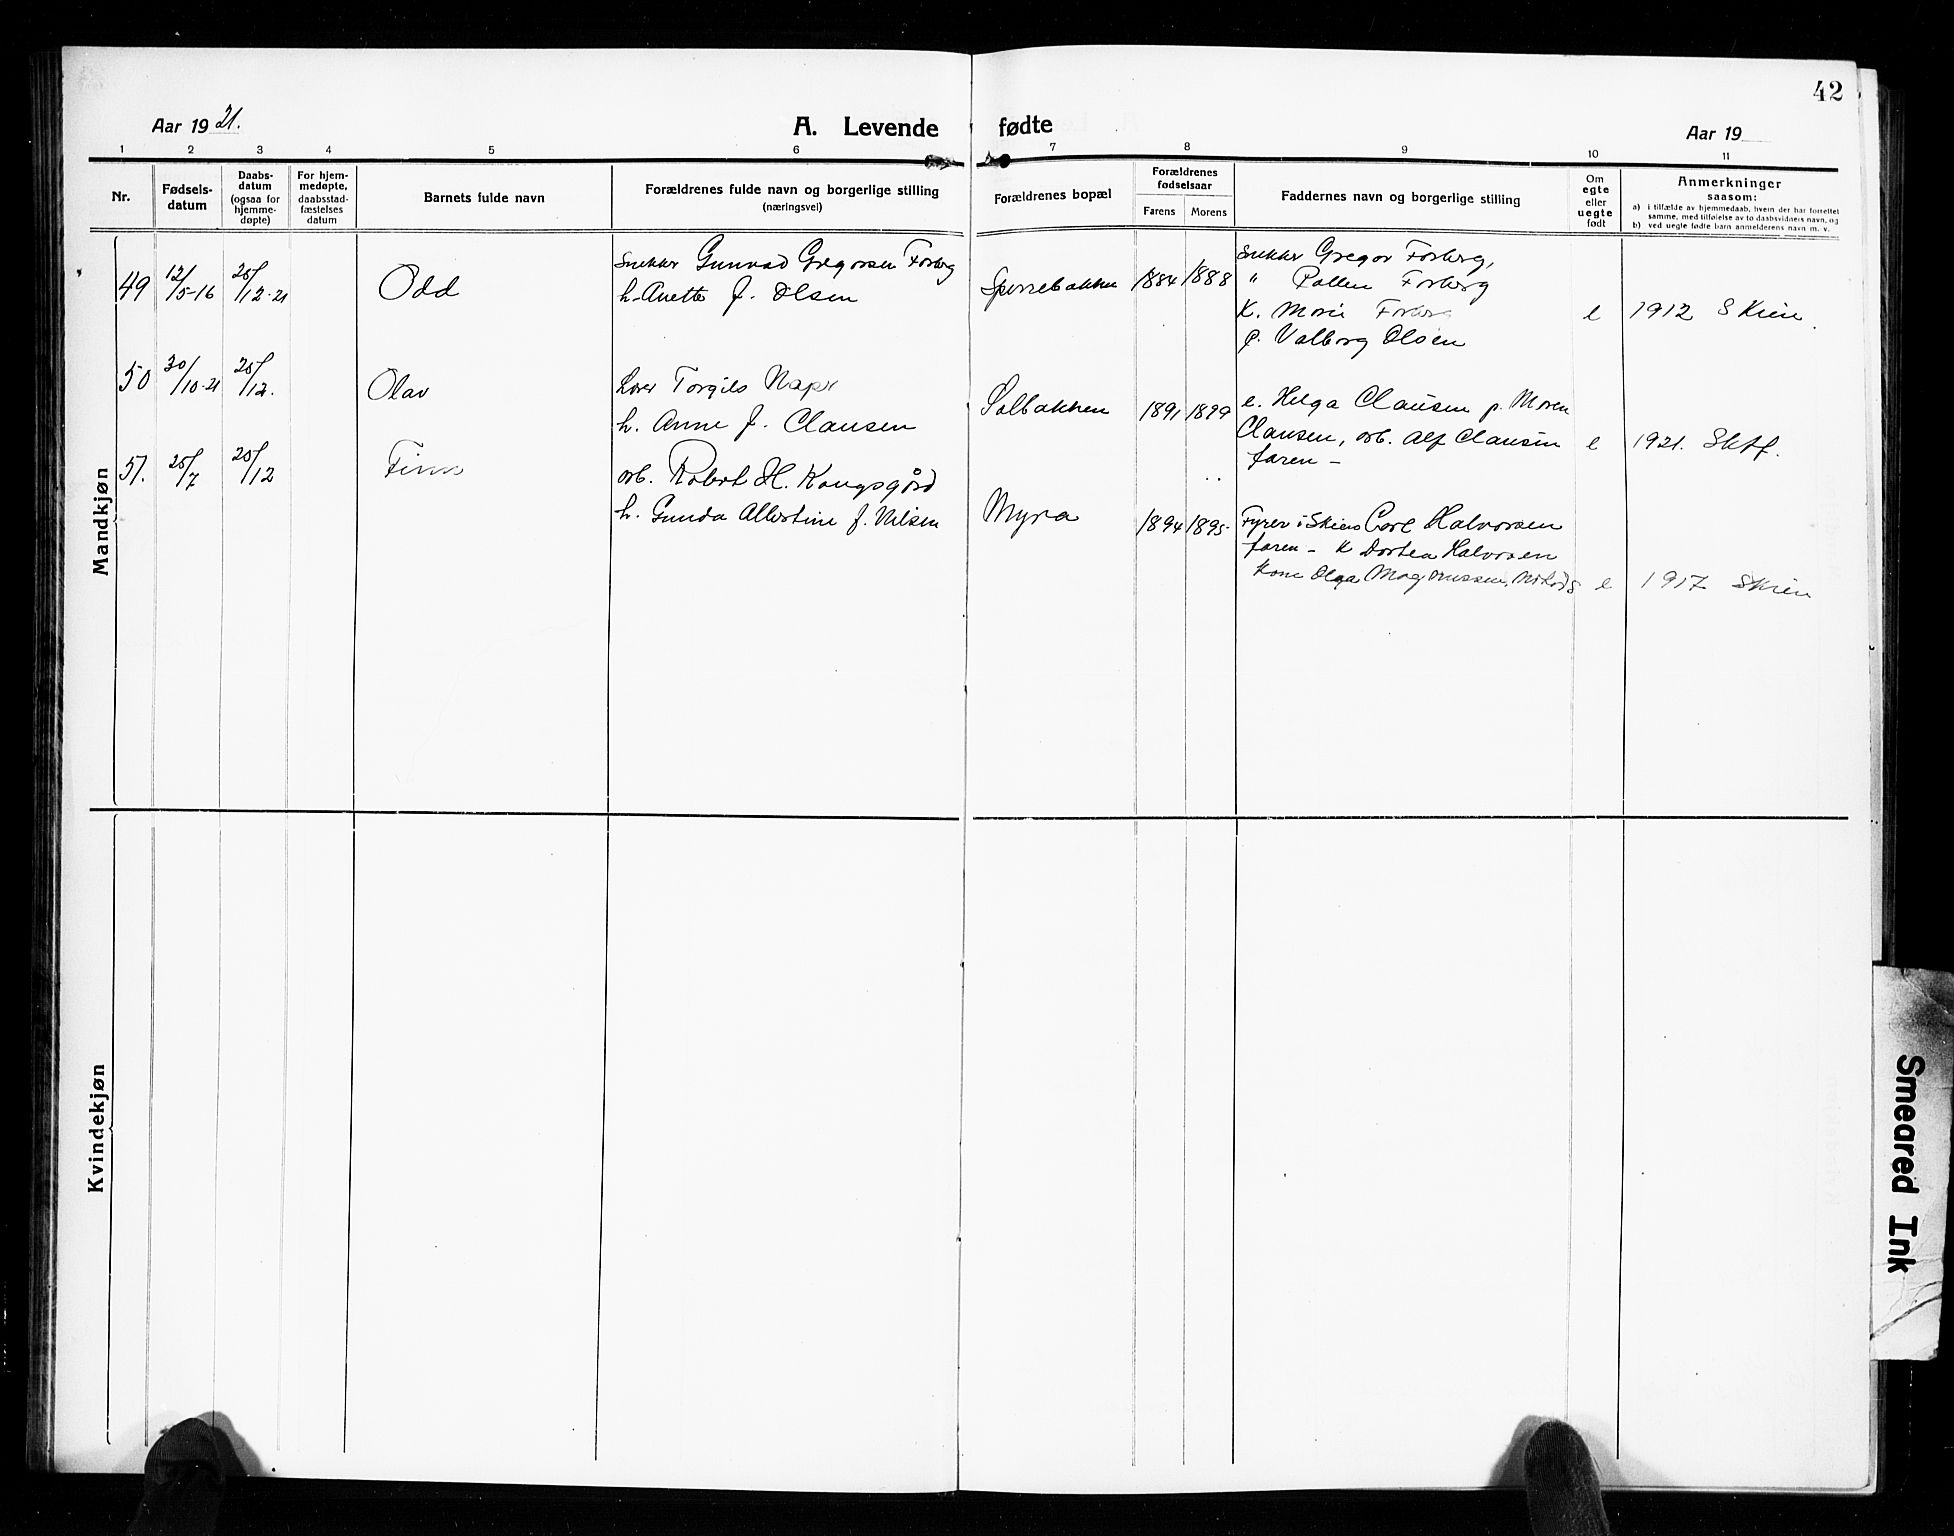 42
Aar 1921.
A. Levende fødte
Aar 19
1 2 3 4 5 6 7 8 9 10 11
Nr.
Fødsels-
datum
Daabs-
datum
(ogsaa for
hjemme-
døpte)
For hjem-
medøpte,
daabsstad-
fæstelses
datum
Barnets fulde navn
Forældrenes fulde navn og borgerlige stilling
(næringsvei)
Forældrenes bopæl
Forældrenes
fødselsaar
Farens Morens
Faddernes navn og borgerlige stilling
Om
egte
eller
uegte
født
Anmerkninger
saasom:
a) i tilfælde av hjemmedaab, hvem der har forrettet
samme, med tilføielse av to daabsvidners navn, og
b) ved uegte fødte barn anmelderens navn m. v.
Mandkjøn
49 12/5-16 25/12-21 Odd
Snekker Gunvad Gregorsen Forberg
h. Anette f. Olsen
Sperrebakken 1884 1888
Snekker Gregor Forberg,
" Pallen Forberg
K. Marie
p. Valborg Olsen
e 1912 Skien
50 30/10-21 25/12. Olav
Torgils
h. Anne f. Clausen
Solbakken 1891 1899
e. Helga Clausen p. Maren
Clausen, arb. Alf Clausen
faren -
e 1921.
51. 25/7 25/12 Finn
arb. Robert H. Kongsgård
h. Gunda Albertine f. Nilsen
Myra 1894 1895
Fyrer i Skiens Carl Halvorsen
faren - K Dortea Halvorsen
Kone Olga Magnussen,
e 1917 Skien
Kvindekjøn
Smeared Ink